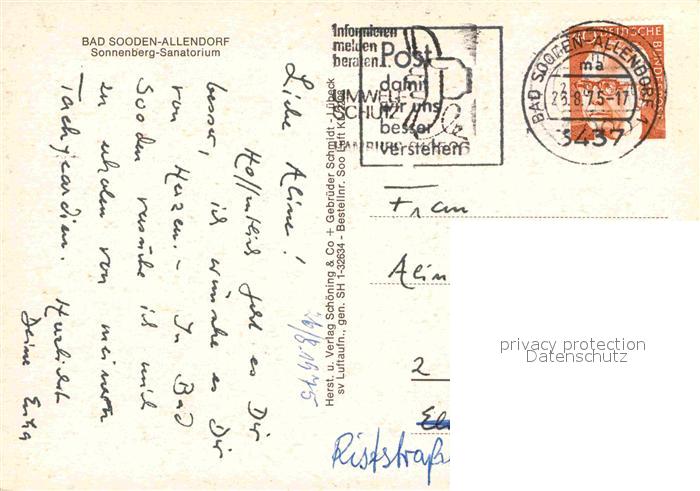 BAD SOODEN-ALLENDORF
Sonnenberg-Sanatorium
Liebe Aline!
Hoffentlich geht es Dir
besser, ich wünsche es Dir
von Herzen. – In Bad
Sooden versuche ich mich
zu erholen von meinen
Tachycardien. Herzlichst
Deine Erika
26/8.1975
Herst. u. Verlag Schöning & Co + Gebrüder Schmidt - Lübeck
sv Luftaufn., gen. SH 1-32634 - Bestellnr. Soo
Informieren
melden
beraten
Post
damit
wir uns
besser
verstehen
UMWELT
SCHUTZ
BAD SOODEN-ALLENDORF 1
ma
8.75-17
3437
DEUTSCHE
BUNDESPOST
Frau
Alin
2
Riststraß
privacy protection
Datenschutz